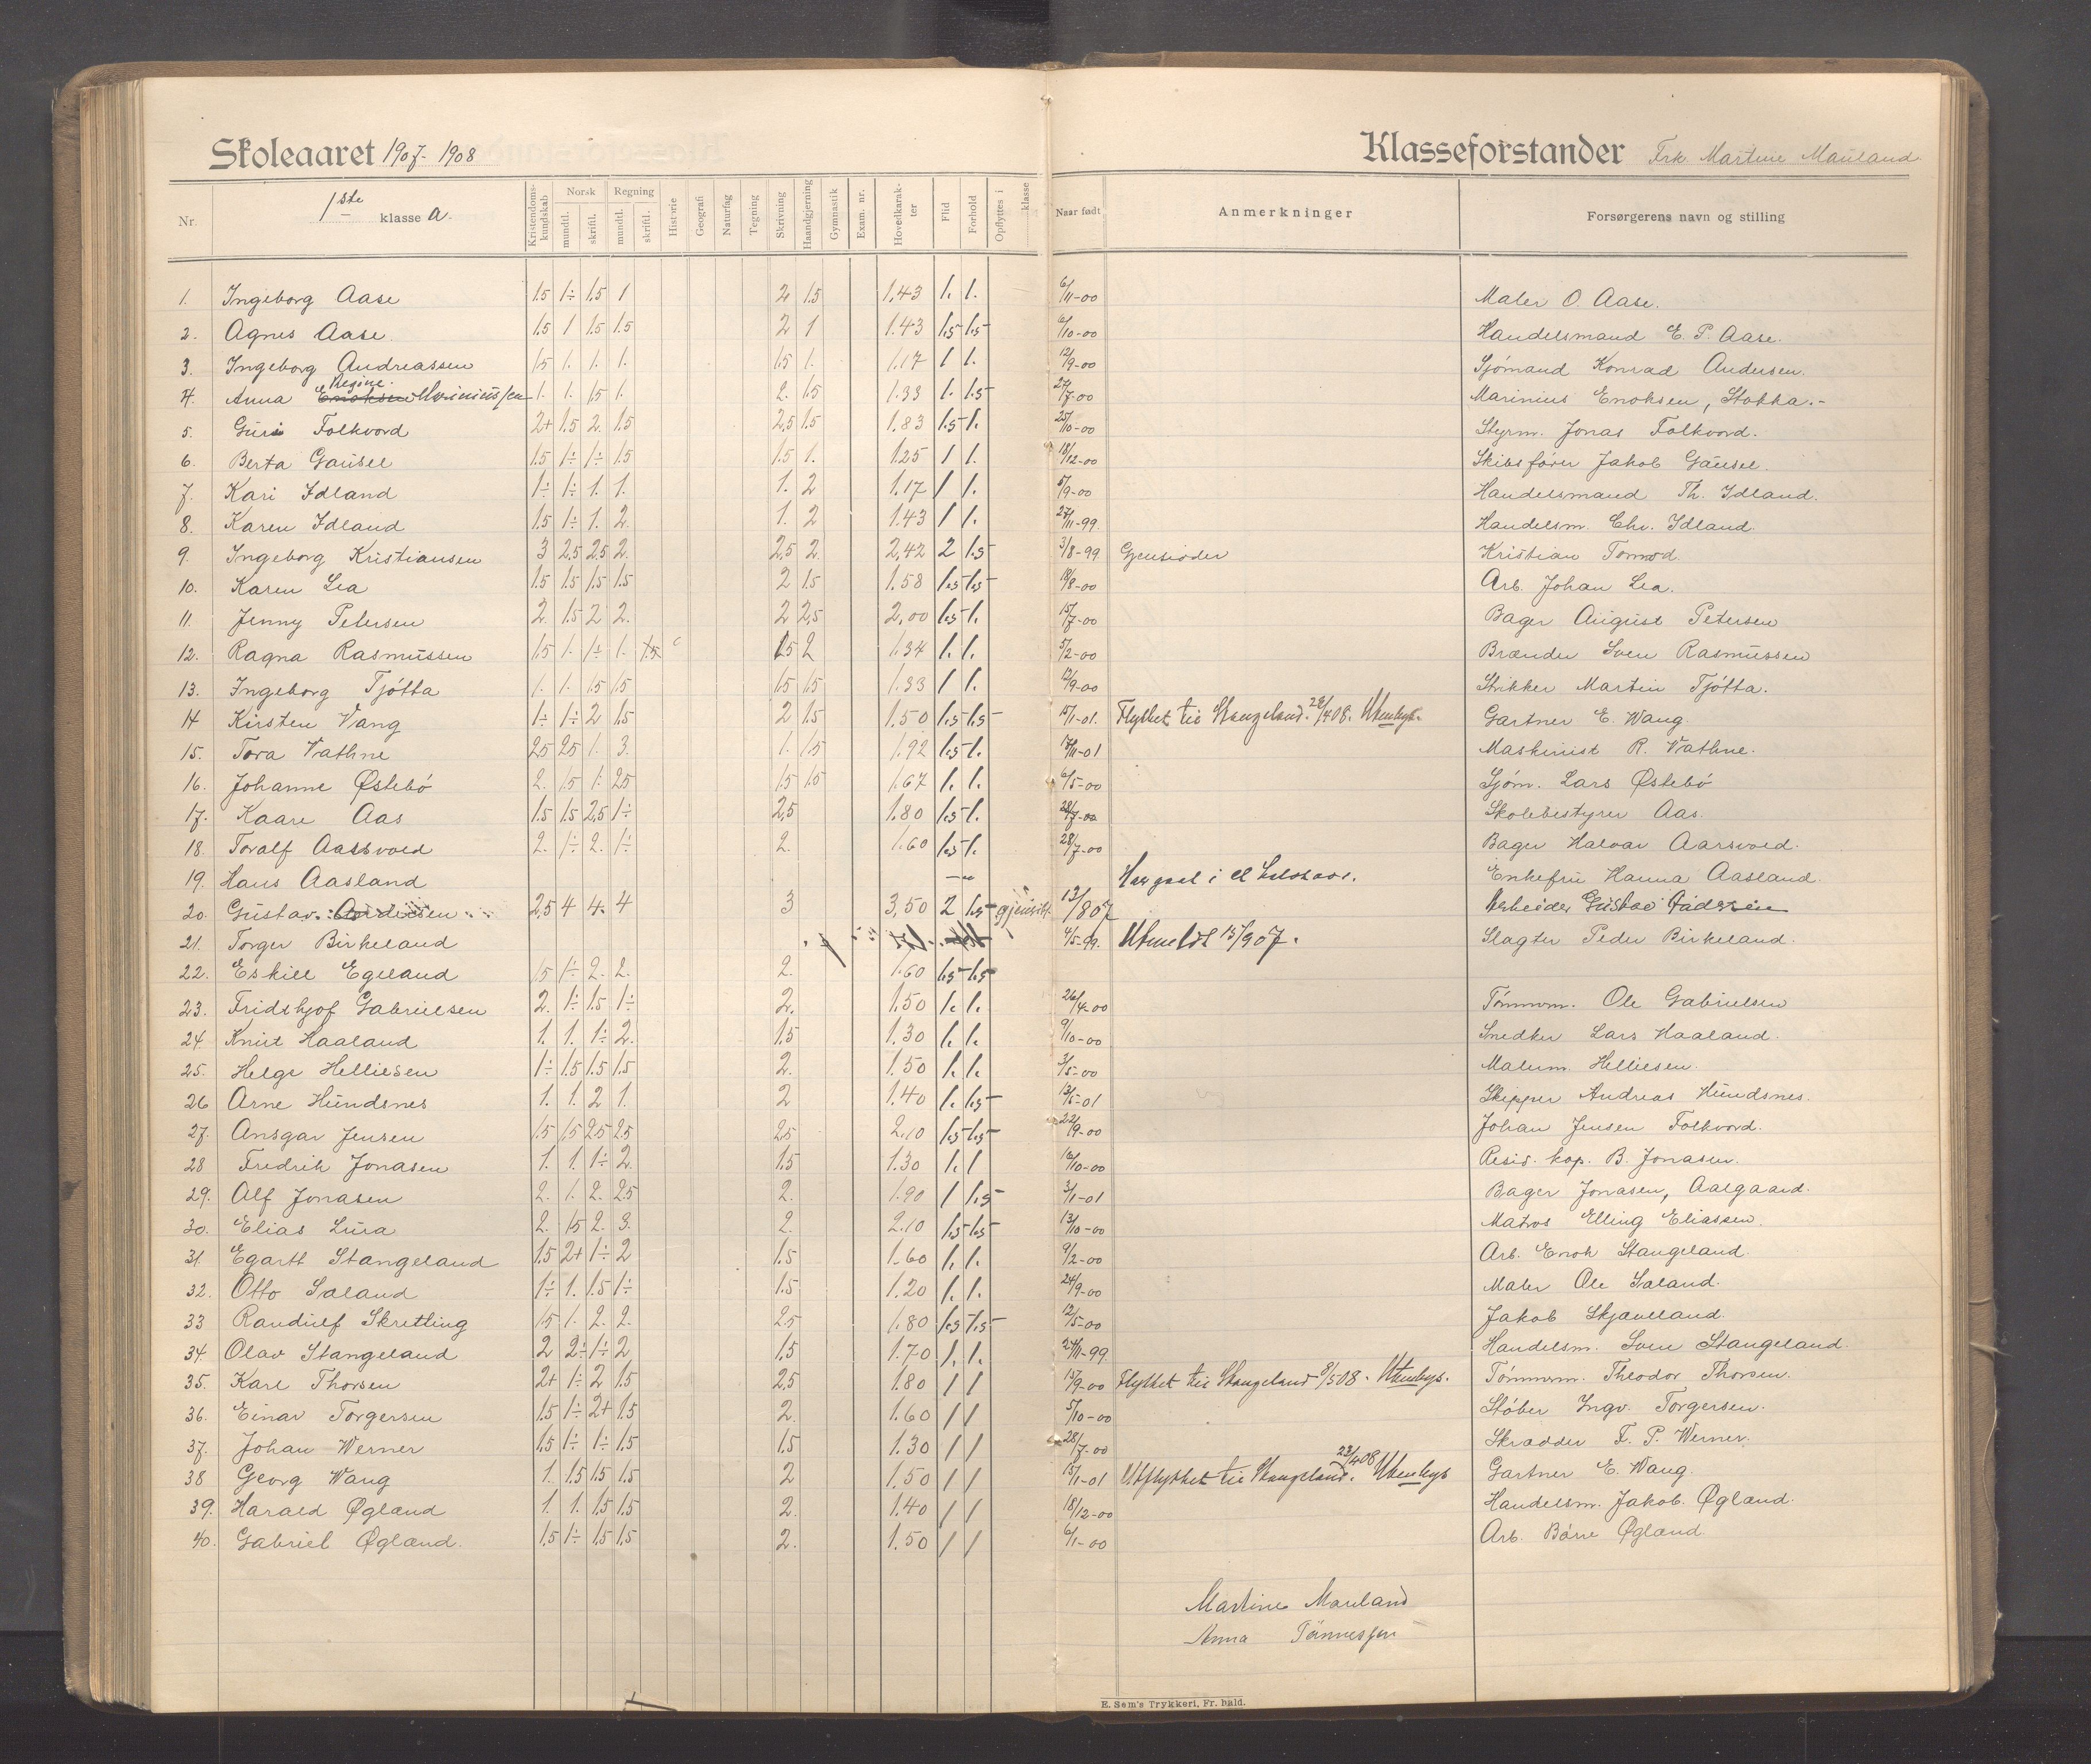 Skoleaaret 1907-1908
Klasseforstander Frk. Martine Mauland
Nr. 1ste klasse A. Kristendomskundskab Norsk mundtl. skriftl. Regning mundtl. skriftl. Historie Geografi Naturfag Tegning Skrivning Haandgjerning Gymnastik Exam. nr. Hovedkarakter Flid Forhold Opflyttes i klasse Naar født Anmerkninger Forsørgerens navn og stilling
1. Ingeborg Aase 1.5 1÷ 1.5 1 2 1.5 1.43 1. 1. 6/11-00 Maler O. Aase.
2. Agnes Aase 1.5 1 1.5 1.5 2 1 1.43 1.5 1.5 6/10-00 Handelsmand E. P. Aase.
3. Ingeborg Andreassen 1.5 1. 1. 1. 1.5 1. 1.17 1 1. 12/9-00 Sjømand Konrad Andersen.
4. Anna Regine Enoksen Mariniussen 1. 1. 1.5 1. 2. 1.5 1.33 1. 1.5 /7-00 Marinius Enoksen, Stokka.-
5. Guri Folkvord 2+ 1.5 2. 1.5 2,5 1.5 1.83 1.5 1. 25/10-00 Styrm. Jonas Folkvord.
6. Berta Gausel 1.5 1÷ 1÷ 1.5 1.5 1. 1.25 1 1. 18/12-00 Skibsfører Jakob Gausel.
7. Kari Idland 1÷ 1÷ 1. 1. 1. 2 1.17 1 1. 5/9-00 Handelsmand Th. Idland.
8. Karen Idland 1.5 1÷ 1. 2. 1. 2 1.43 1 1. 27/11-99. Handelsm. Chr. Idland.
9. Ingeborg Kristiansen 3 2,5 2,5 2. 2,5 2. 2,42 2 1.5 3/8-99 Gjensidder Kristian Tormod.
10. Karen Lea 1.5 1.5 1.5 1.5 2 1.5 1.58 1.5 1.5 18/8-00 Arb. Johan Lea.
11. Jenny Petersen 2. 1.5 2. 2. 2 2,5 2,00 1.5 1. 15/7-00 Bager August Petersen
12. Ragna Rasmussen 1.5 1. 1÷ 1. 1.5 1.5 2 1.34 1. 1. 5/2-00 Brænder Sven Rasmussen
13. Ingeborg Tjøtta 1. 1. 1.5 1.5 1.5 1.5 1.33 1 1. 12/9-00 Strikker Martin Tjøtta.
14 Kirsten Wang 1÷ 1÷ 2 1.5 2 1.5 1.50 1.5 1.5 15/1-01. Flyttet til Stangeland. 28/4 08. Utenbys. Gartner E. Wang.
15. Tora Vathne 2.5 2.5 1. 3. 1. 1.5 1,92 1.5 1. 17/11-01 Maskinist R. Vathne.
16. Johanne Østebø 2. 1.5 1. 2.5 1.5 1.5 1.67 1. 1. 6/5-00 Sjøm. Lars Østebø
17. Kaare Aas 1.5 1.5 2,5 1÷ 2,5 1.80 1.5 1. 28/7-00 Skolebestyrer Aas.
18. Toralf Aarsvold 2. 1÷ 2. 1÷ 2. 1.60 1.5 1. 28/7-00 Bager Halvar Aarsvold.
19. Hans Aasland Har gaat i Enkefru Hanna Aasland.
20. Gustav Andersen 2,5 4 4. 4 3 3,50 2 1.5 gjensidd. 13/8 07 Arbeider Gustav
21. Torger Birkeland 4/5-99. Utmeldt 15/9 07. Slagter Peder Birkeland.
22. Eskill Egeland 1.5 1÷ 2. 2. 2. 1.60 1.5 1.5
23. Fridthjof Gabrielsen 2. 1÷ 1.5 1÷ 2. 1.50 1. 1. 26/4-00 Tømmrm. Ole Gabrielsen
24. Knut Haaland 1. 1. 1÷ 2. 1.5 1.30 1. 1. 9/10-00 Snedker Lars Haaland.
25. Helge Helliesen 1÷ 1.5 1.5 1.5 2. 1.50 1. 1. 3/5-00 Malerm. Helliesen.
26 Arne Hundsnes 1. 1. 2 1. 2 1.40 1. 1.5 13/5-01 Skipper Andreas Hundsnes.
27. Ansgar Jensen 1.5 1.5 2.5 2.5 2.5 2.10 1.5 1.5 22/9-00 Johan Jensen Folkvord.
28 Fredrik Jonasen 1. 1. 1÷ 2. 1.5 1.30 1. 1 16/10-00 Resid. kap. B. Jonasen.
29. Alf Jonasen 2. 1. 2. 2.5 2. 1.90 1 1.5 3/1-01 Bager Jonasen, Aalgaard.
30. Elias Lura 2. 1.5 2. 3. 2. 2.10 1.5 1.5 13/10-00 Matros Elling Eliassen.
31. Egartt Stangeland 1.5 2+ 1÷ 2 1.5 1.60 1. 1. 9/2-00 Arb. Enok Stangeland.
32. Otto Saland 1÷ 1. 1.5 1÷ 1.5 1.20 1. 1. 24/9-00 Maler Ole Saland.
33 Randulf Skretting 1.5 1. 2. 2. 2.5 1.80 1.5 1.5 12/5-00 Jakob Skjæveland.
34. Olav Stangeland 2 2÷ 1÷ 2 1.5 1.70 1. 1. 24/11-99. Handelsm. Sven Stangeland.
35. Karl Thorsen 2+ 1÷ 2 1.5 2,5 1.80 1 1 15/9-00 Flyttet til Stangeland 8/5 08. Utenbys. Tømmrm. Theodor Thorsen.
36. Einar Torgersen 1.5 1÷ 2+ 1.5 2. 1.60 1 1 5/10-00 Støber Ingv. Torgersen.
37. Johan Werner 1,5 1÷ 1÷ 1.5 1.5 1.30 1 1 28/7-00 Skrædder F. P. Werner.
38 Georg Wang 1. 1.5 1.5 1.5 2 1.50 1 1 15/1-01 Utflyttet til Stangeland. 23/4 08 Utenbys Gartner E. Wang.
39. Harald Øgland 1. 1. 1.5 1.5 2. 1.40 1 1 18/12-00 Handelsm. Jakob. Øgland.
40. Gabriel Øgland. 1.5 1÷ 1.5 1.5 2. 1.50 1 1 6/1-00 Arb. Børre Øgland.
Martine Mauland
Anna Tønnessen
E. Sem's Trykkeri, Fr. hald.